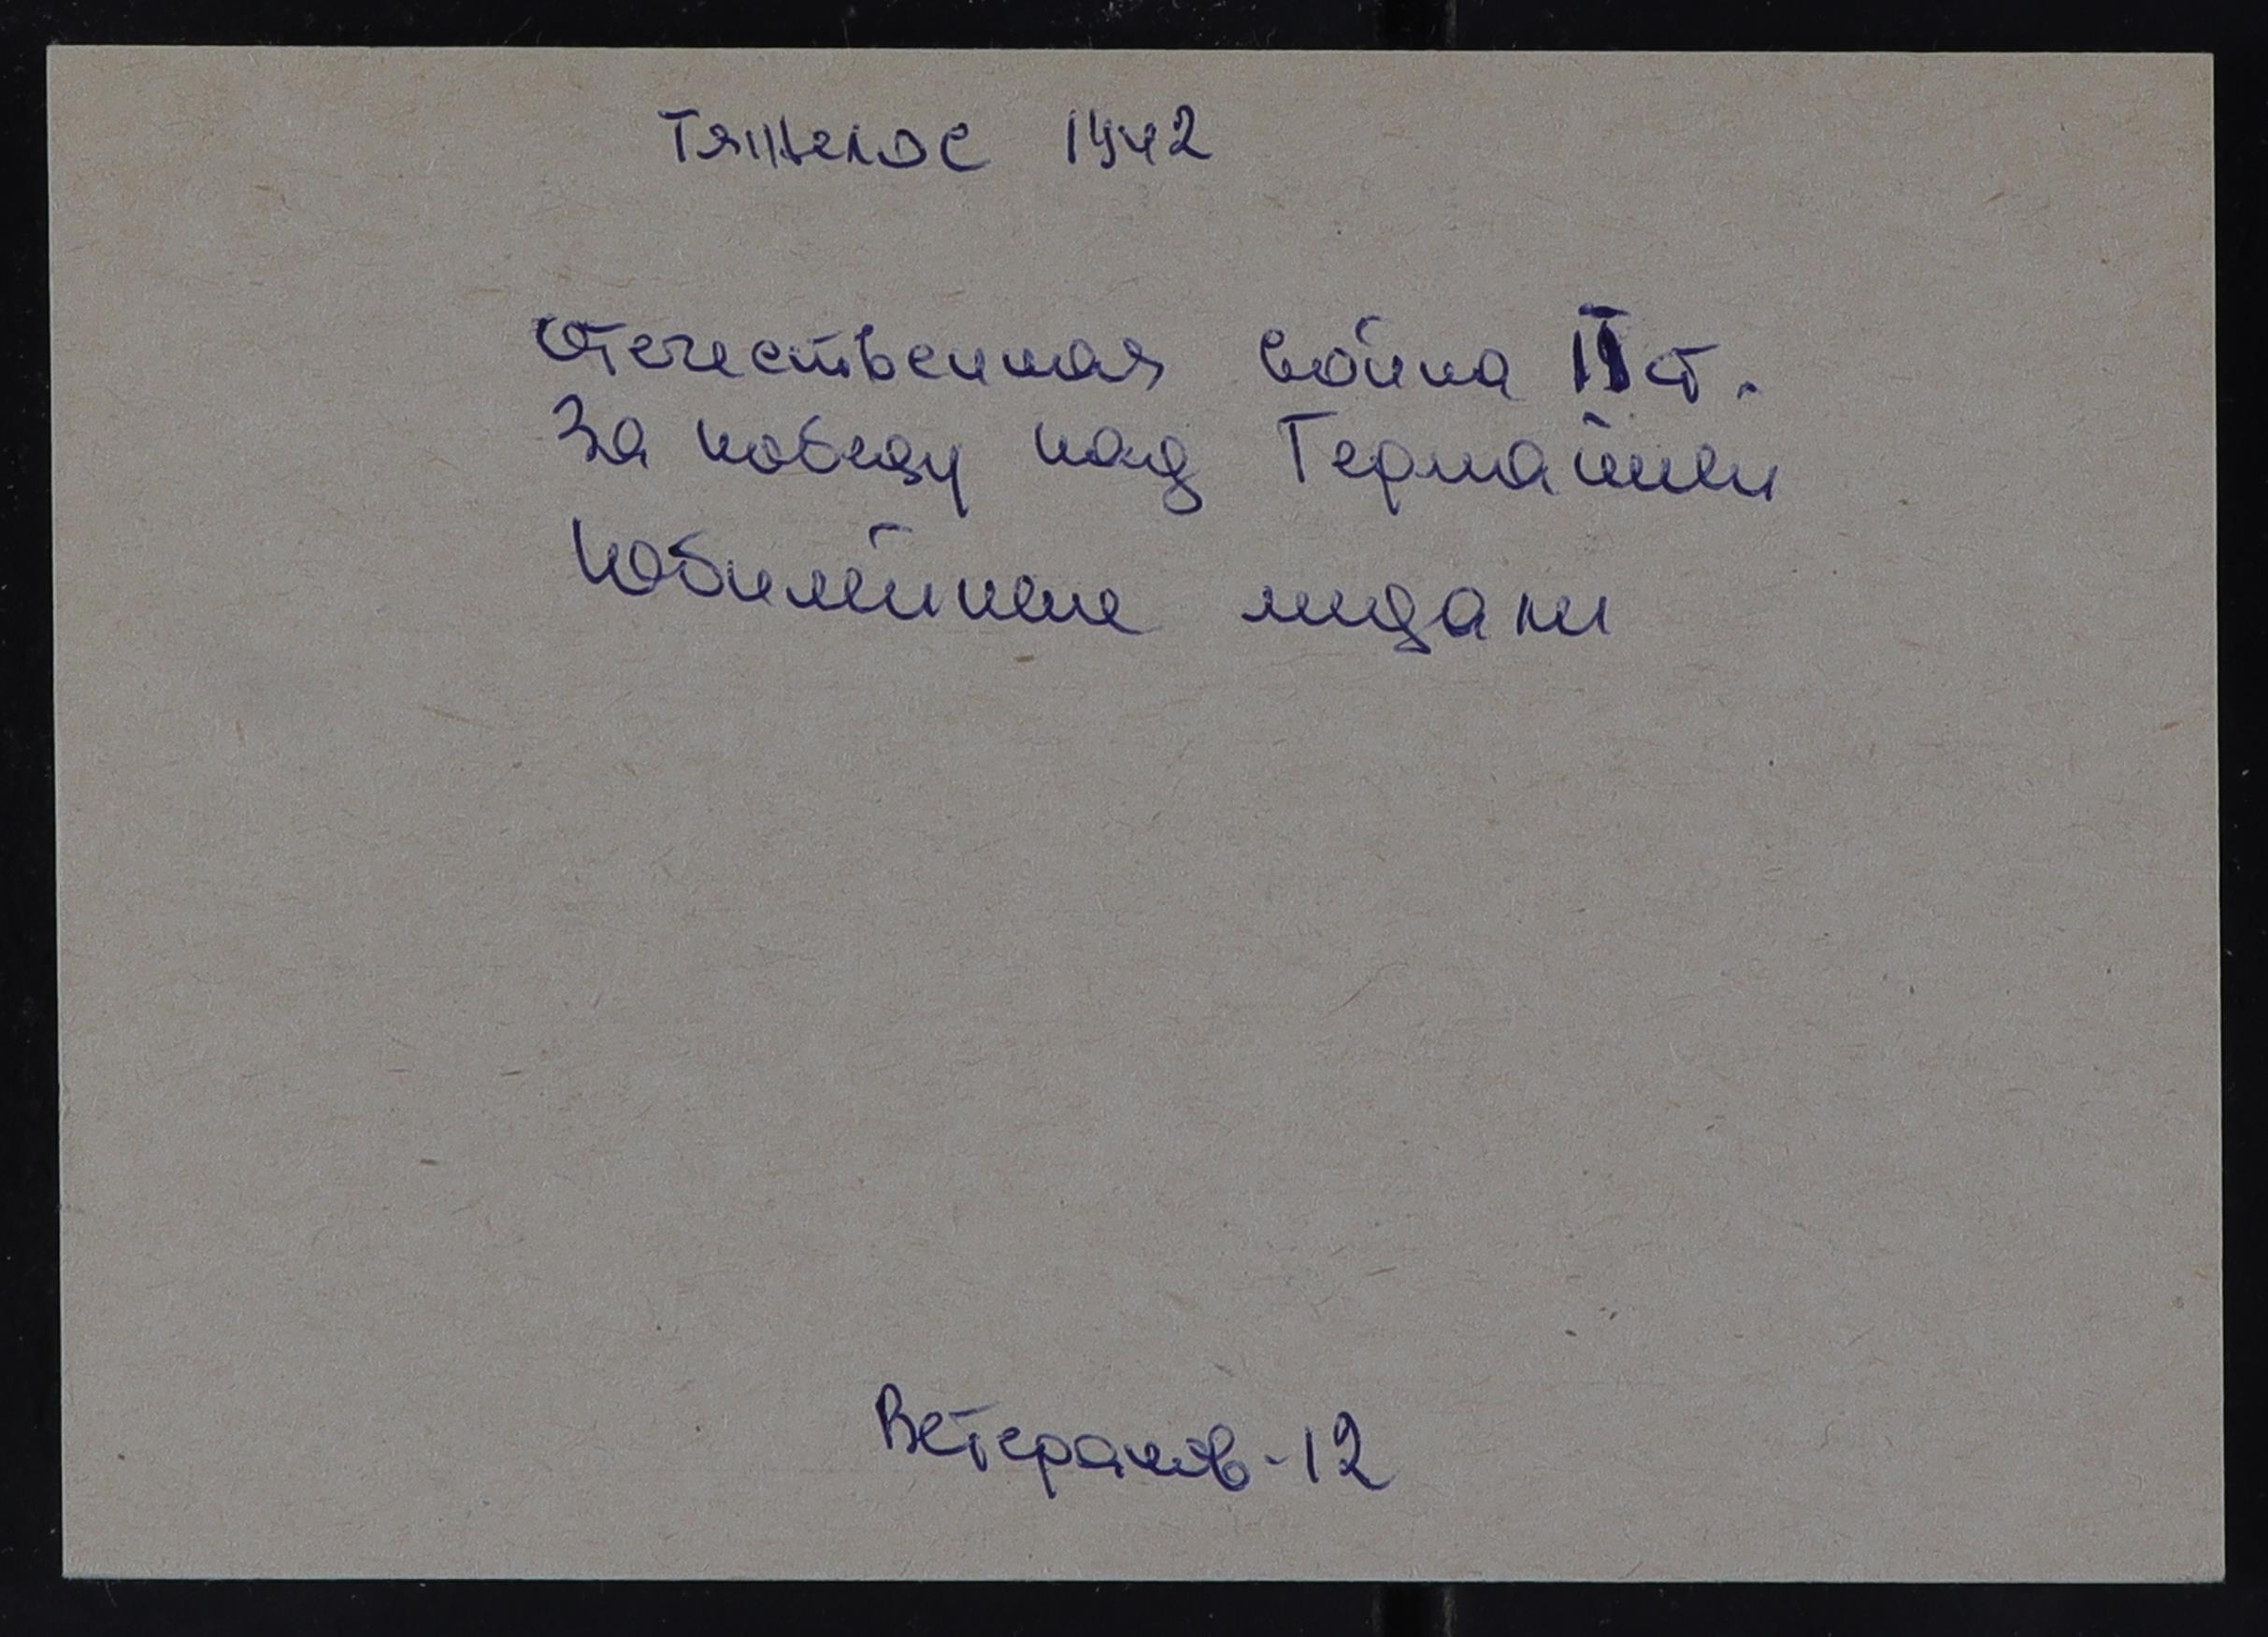 Тяжелое 1942
Отечественная война II ст.
За победу над Германией
Юбилейные медали
Ветеранов-12